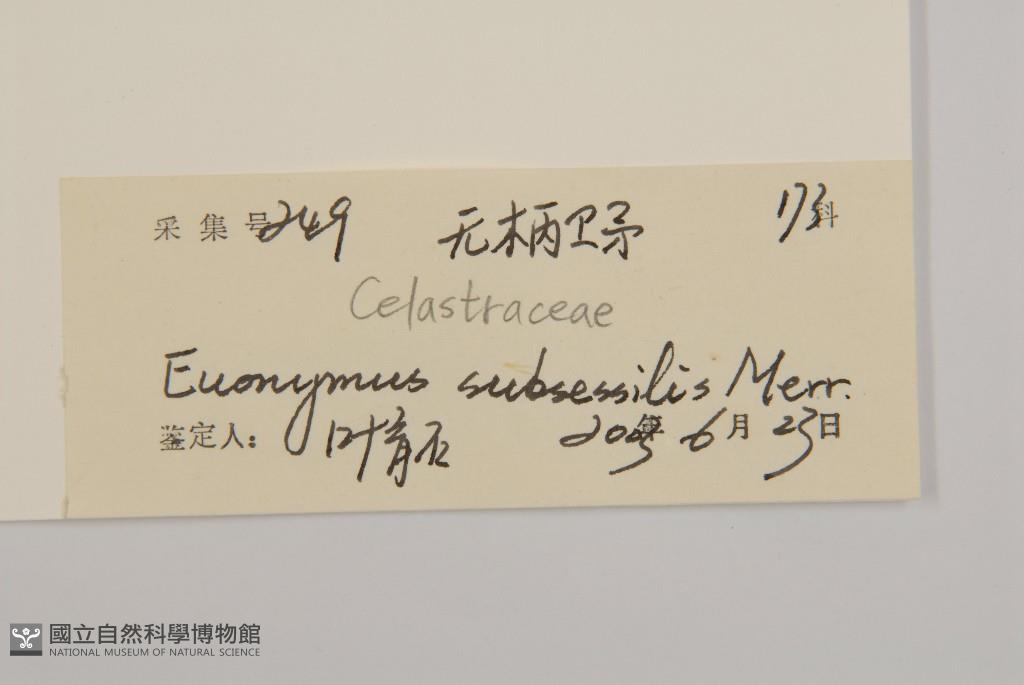 采集号249 无柄卫矛 173科
Celastraceae
Euonymus subsessilis Merr.
鉴定人： 叶育石 2005年 6月 23日
國立自然科學博物館
NATIONAL MUSEUM OF NATURAL SCIENCE